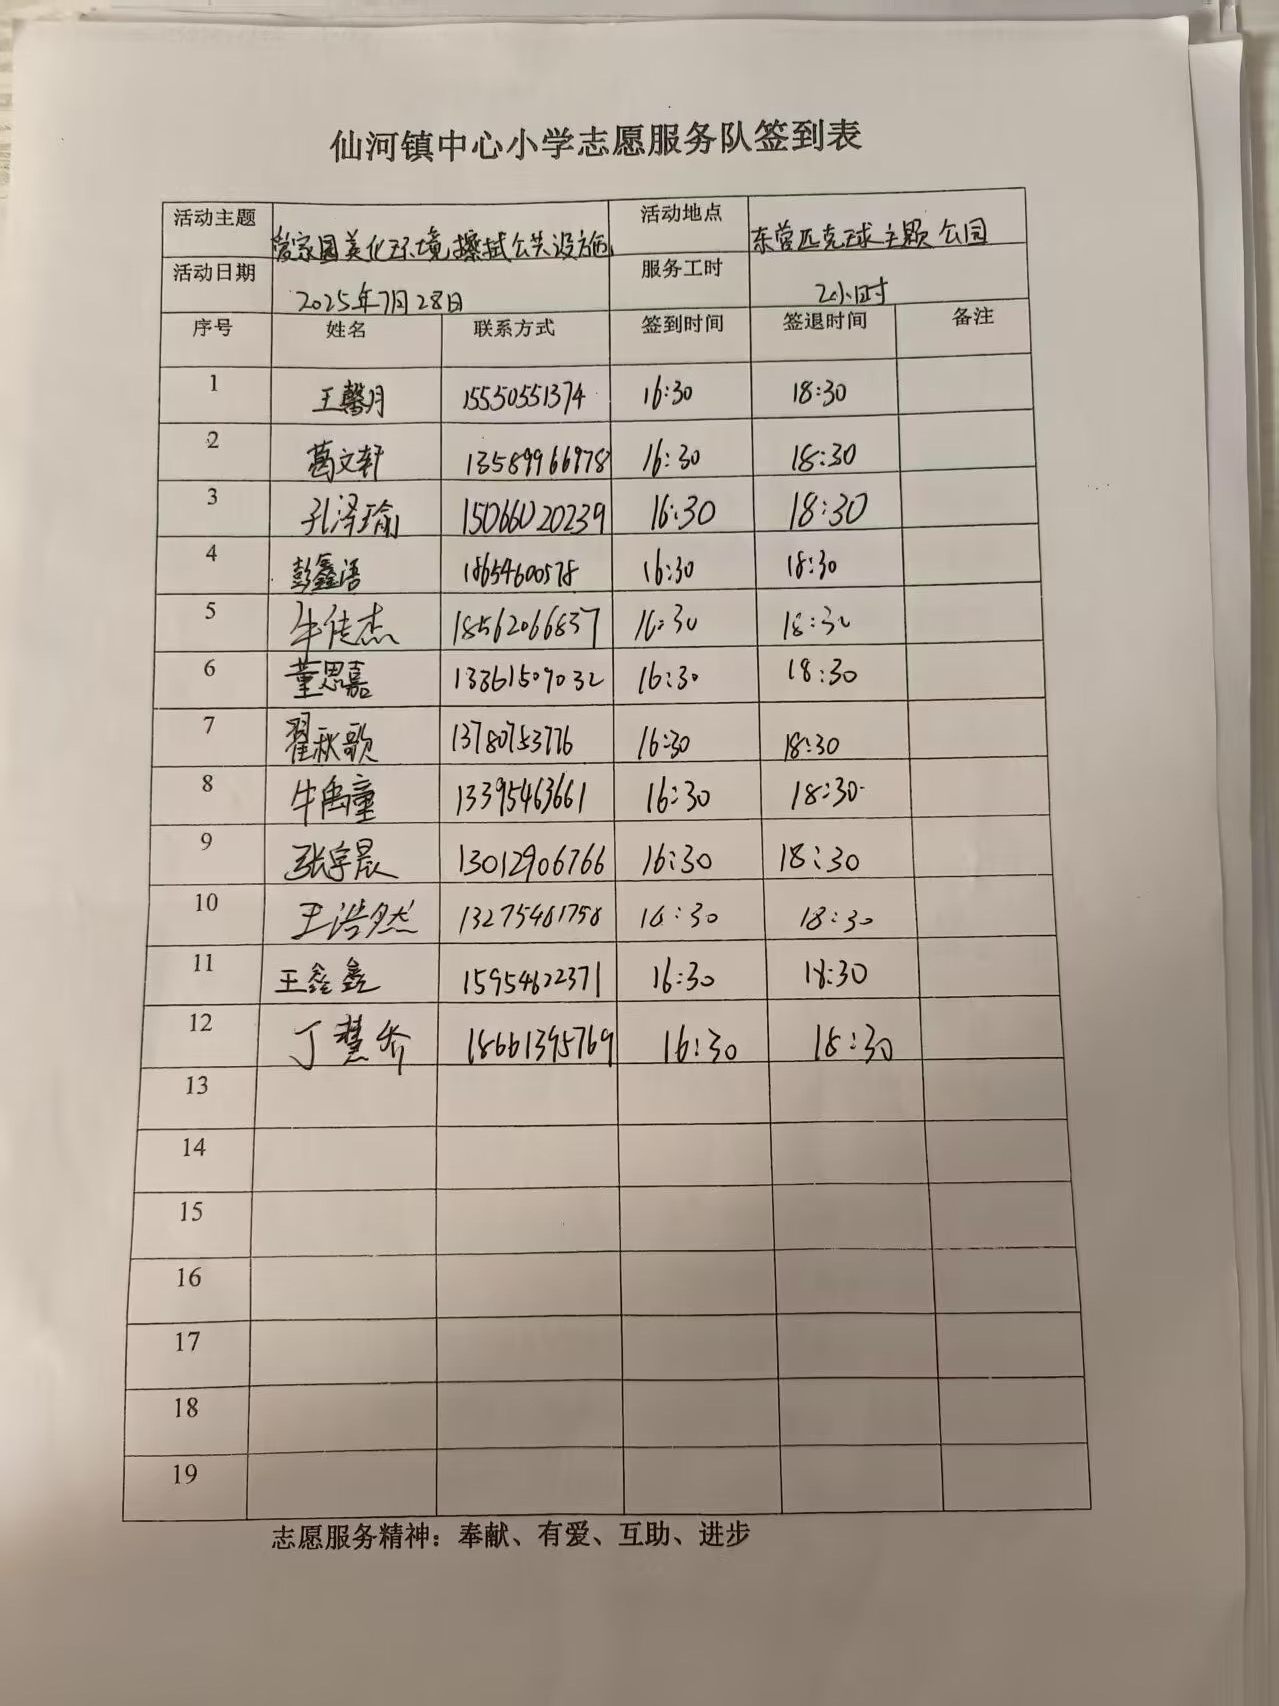 仙河镇中心小学志愿服务队签到表
活动主题 爱家园美化环境,擦拭公共设施 活动地点 东营匹克球主题公园
活动日期 2025年7月28日 服务工时 2小时
序号 姓名 联系方式 签到时间 签退时间 备注
1 王馨月 15550551374 16:30 18:30
2 葛文轩 13589966978 16:30 18:30
3 孔泽瑜 15066020239 16:30 18:30
4 彭鑫语 18654600578 16:30 18:30
5 牛佳杰 18562066837 16:30 18:30
6 董思嘉 13361507032 16:30 18:30
7 翟秋歌 13780753776 16:30 18:30
8 牛禹童 13395463661 16:30 18:30
9 张宇晨 13012906766 16:30 18:30
10 王浩然 13275461758 16:30 18:30
11 王鑫鑫 15954622371 16:30 18:30
12 丁慧 18661395769 16:30 18:30
13
14
15
16
17
18
19
志愿服务精神：奉献、有爱、互助、进步